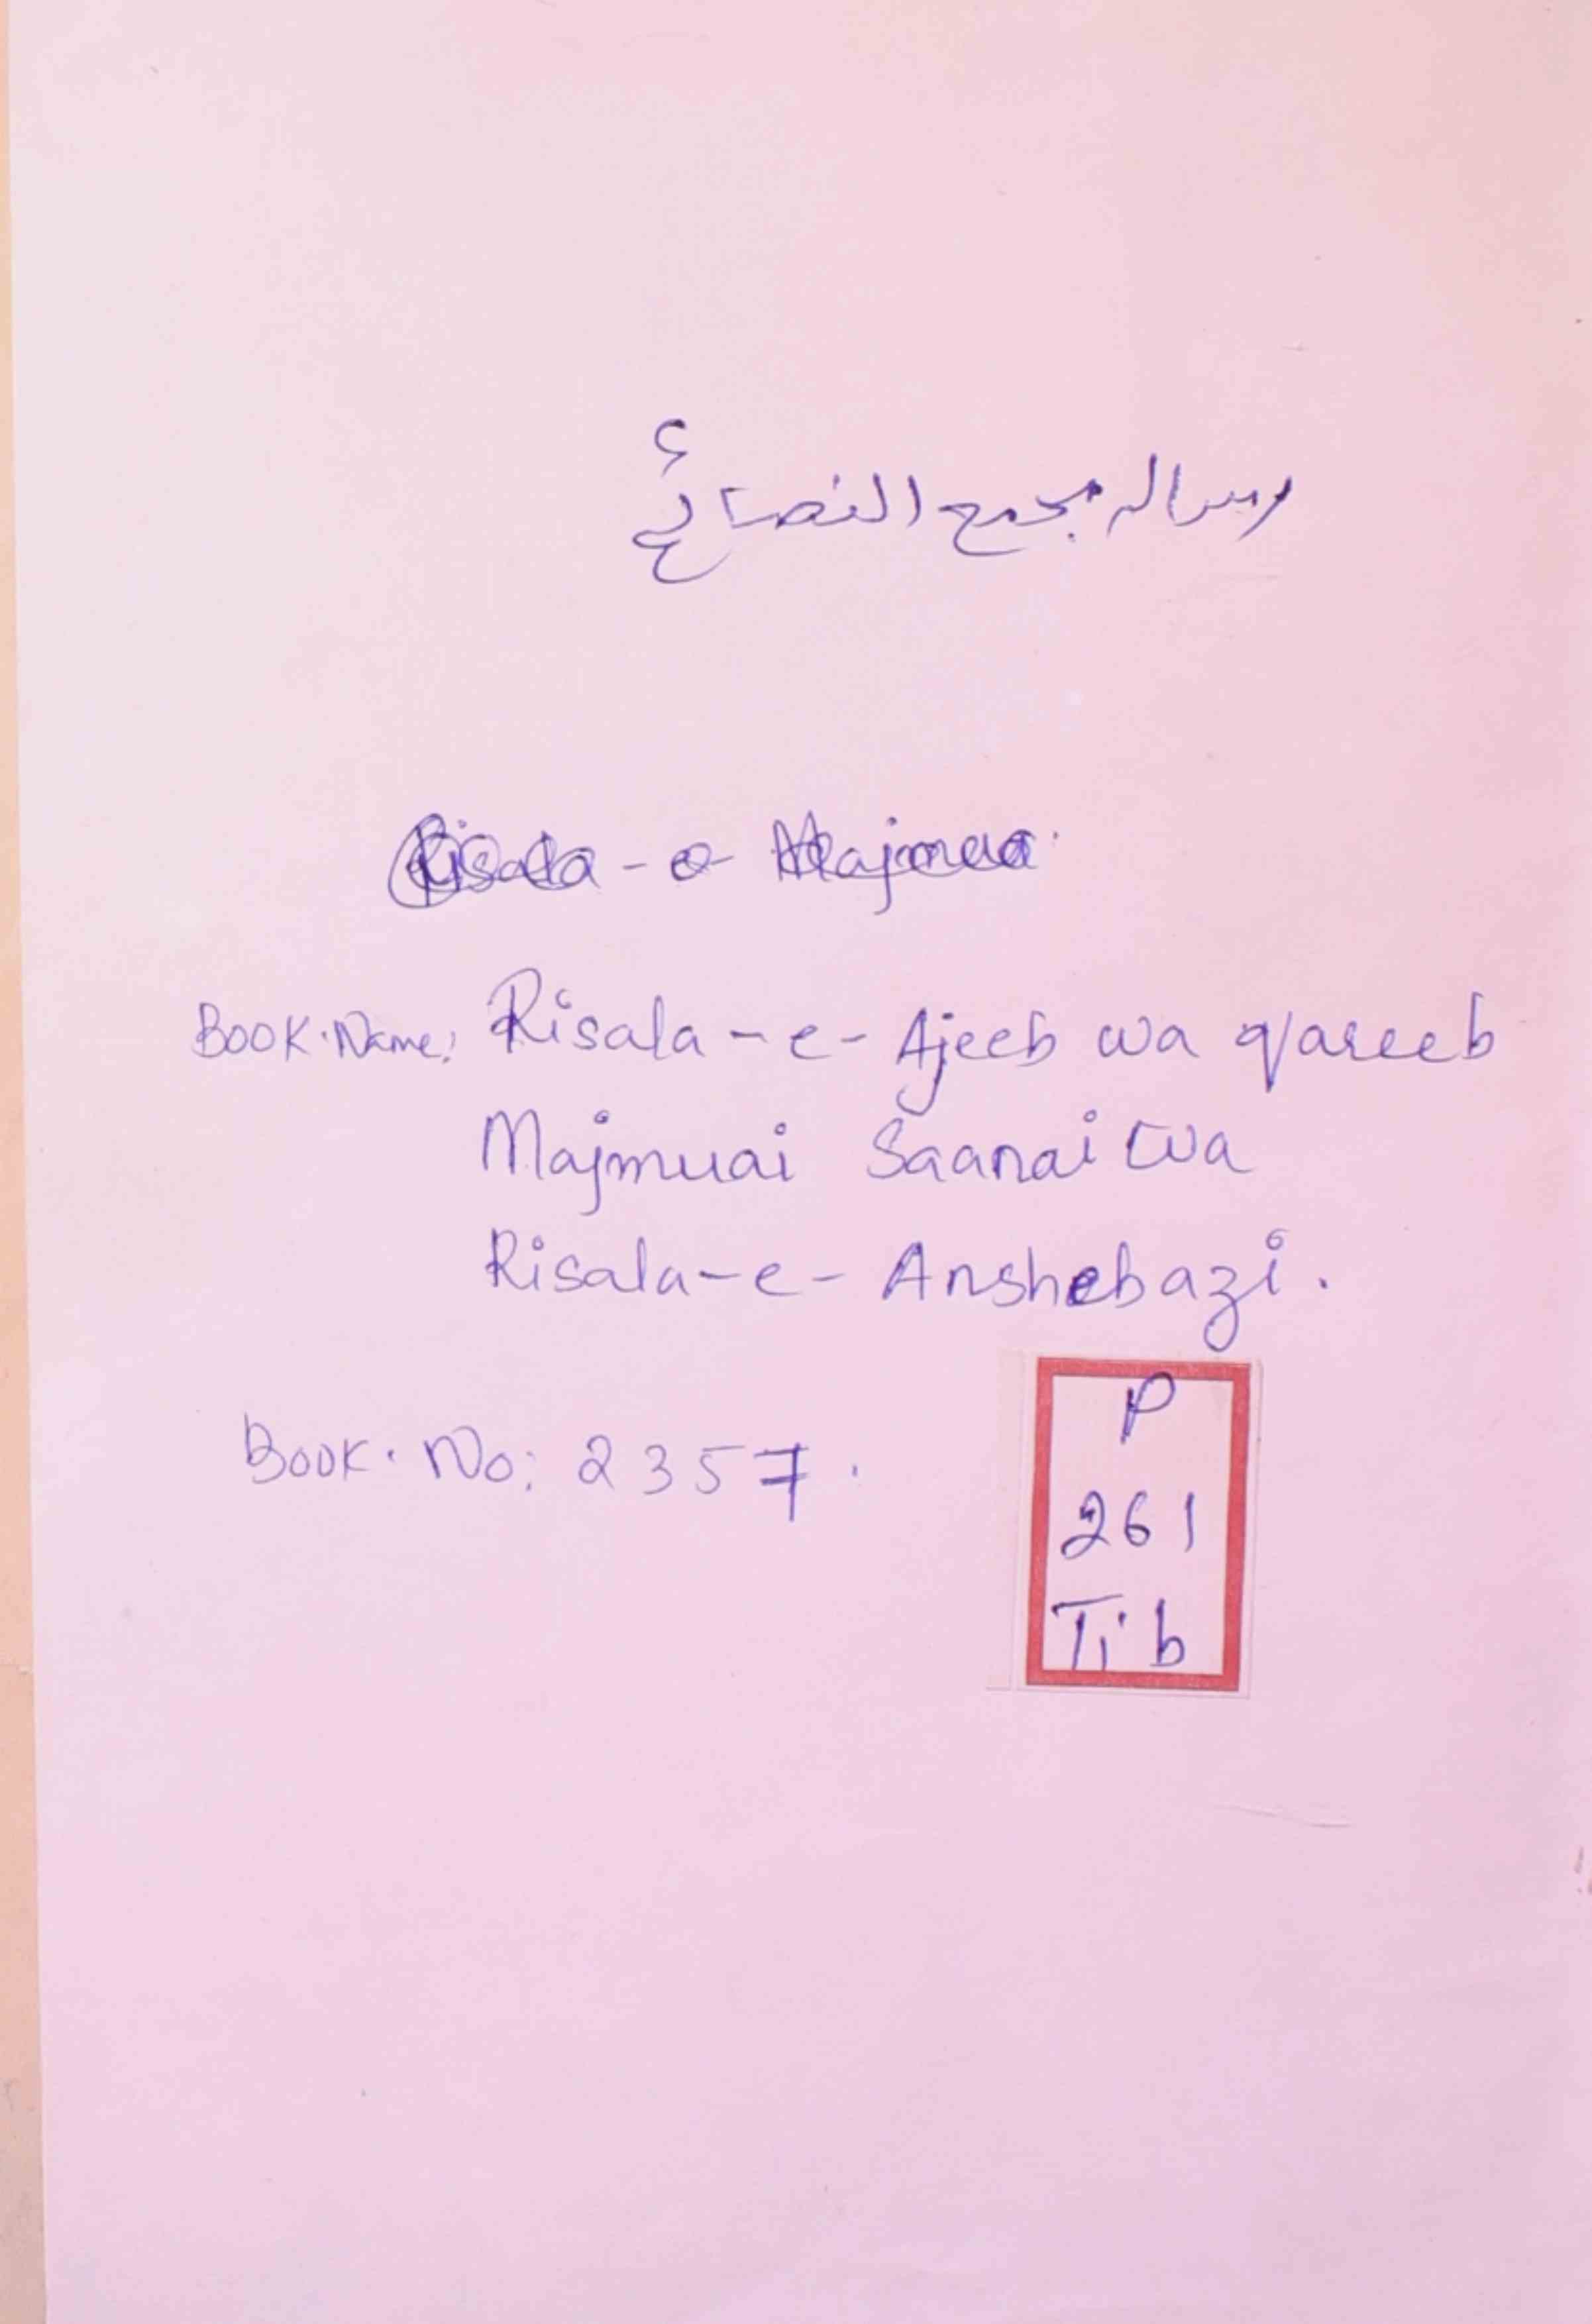 رساله مجمع الصنائع
Risala - e - Majmua
Book.Name: Risala - e - Ajeeb wa qareeb
Majmuai Saanai wa
Risala - e - Anshebazi.
Book. No: 2357.
P
261
Tib